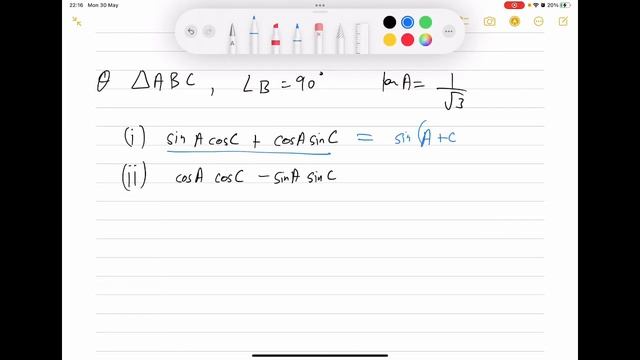 22:16 Mon 30 May
20%
θ △ABC, ∠B = 90° tan A = 1/√3
(i) sin A cos C + cos A sin C = sin(A + C
(ii) cos A cos C − sin A sin C